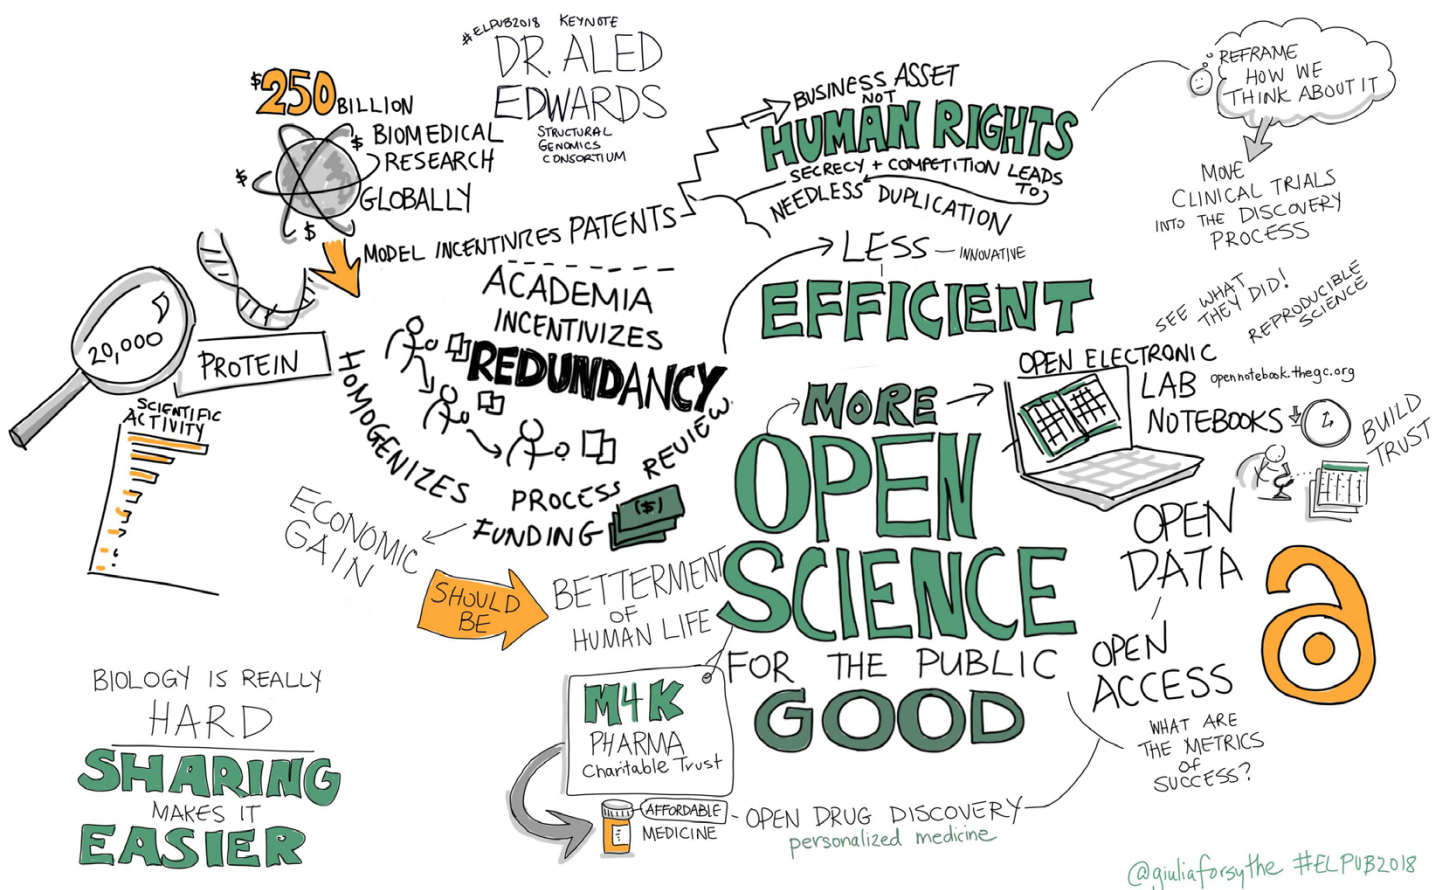 #ELPUB2018 KEYNOTE
DR. ALED
EDWARDS
STRUCTURAL
GENOMICS
CONSORTIUM
$250 BILLION
BIOMEDICAL
RESEARCH
GLOBALLY
$
$
$
MODEL INCENTIVIZES PATENTS
BUSINESS ASSET
NOT
HUMAN RIGHTS
SECRECY + COMPETITION LEADS
TO
NEEDLESS DUPLICATION
REFRAME
HOW WE
THINK ABOUT IT
MOVE
CLINICAL TRIALS
INTO THE DISCOVERY
PROCESS
20,000
PROTEIN
SCIENTIFIC
ACTIVITY
ACADEMIA
INCENTIVIZES
REDUNDANCY
HOMOGENIZES
REVIEW
PROCESS
FUNDING
($)
LESS — INNOVATIVE
EFFICIENT
ECONOMIC
GAIN
SHOULD
BE
BETTERMENT
OF
HUMAN LIFE
MORE
OPEN
SCIENCE
FOR THE PUBLIC
GOOD
SEE WHAT
THEY DID!
REPRODUCIBLE
SCIENCE
OPEN ELECTRONIC
LAB
NOTEBOOKS
opennotebook.thegc.org
BUILD
TRUST
OPEN
DATA
OPEN
ACCESS
WHAT ARE
THE METRICS
OF
SUCCESS?
M4K
PHARMA
Charitable Trust
AFFORDABLE
MEDICINE
- OPEN DRUG DISCOVERY
personalized medicine
BIOLOGY IS REALLY
HARD
SHARING
MAKES IT
EASIER
@giuliaforsythe #ELPUB2018